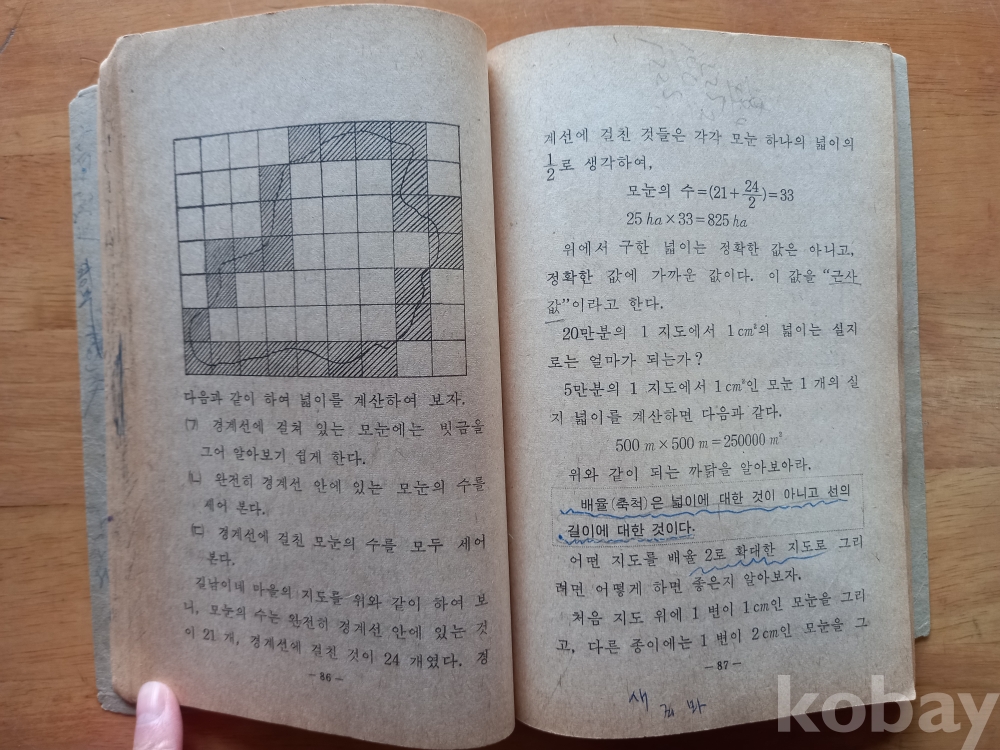 다음과 같이 하여 넓이를 계산하여 보자.
㈀ 경계선에 걸쳐 있는 모눈에는 빗금을
그어 알아보기 쉽게 한다.
㈁ 완전히 경계선 안에 있는 모눈의 수를
세어 본다.
㈂ 경계선에 걸친 모눈의 수를 모두 세어
본다.
길남이네 마을의 지도를 위와 같이 하여 보
니, 모눈의 수는 완전히 경계선 안에 있는 것
이 21 개, 경계선에 걸친 것이 24 개였다. 경
－86－
계선에 걸친 것들은 각각 모눈 하나의 넓이의
1/2로 생각하여,
모눈의 수=(21+24/2)=33
25 ha×33=825 ha
위에서 구한 넓이는 정확한 값은 아니고,
정확한 값에 가까운 값이다. 이 값을 “근사
값”이라고 한다.
20만분의 1 지도에서 1 cm²의 넓이는 실지
로는 얼마가 되는가?
5만분의 1 지도에서 1 cm²인 모눈 1 개의 실
지 넓이를 계산하면 다음과 같다.
500 m×500 m=250000 m²
위와 같이 되는 까닭을 알아보아라.
배율(축척)은 넓이에 대한 것이 아니고 선의
길이에 대한 것이다.
어떤 지도를 배율 2로 확대한 지도로 그리
려면 어떻게 하면 좋은지 알아보자.
처음 지도 위에 1 변이 1 cm인 모눈을 그리
고, 다른 종이에는 1 변이 2 cm인 모눈을 그
－87－
kobay